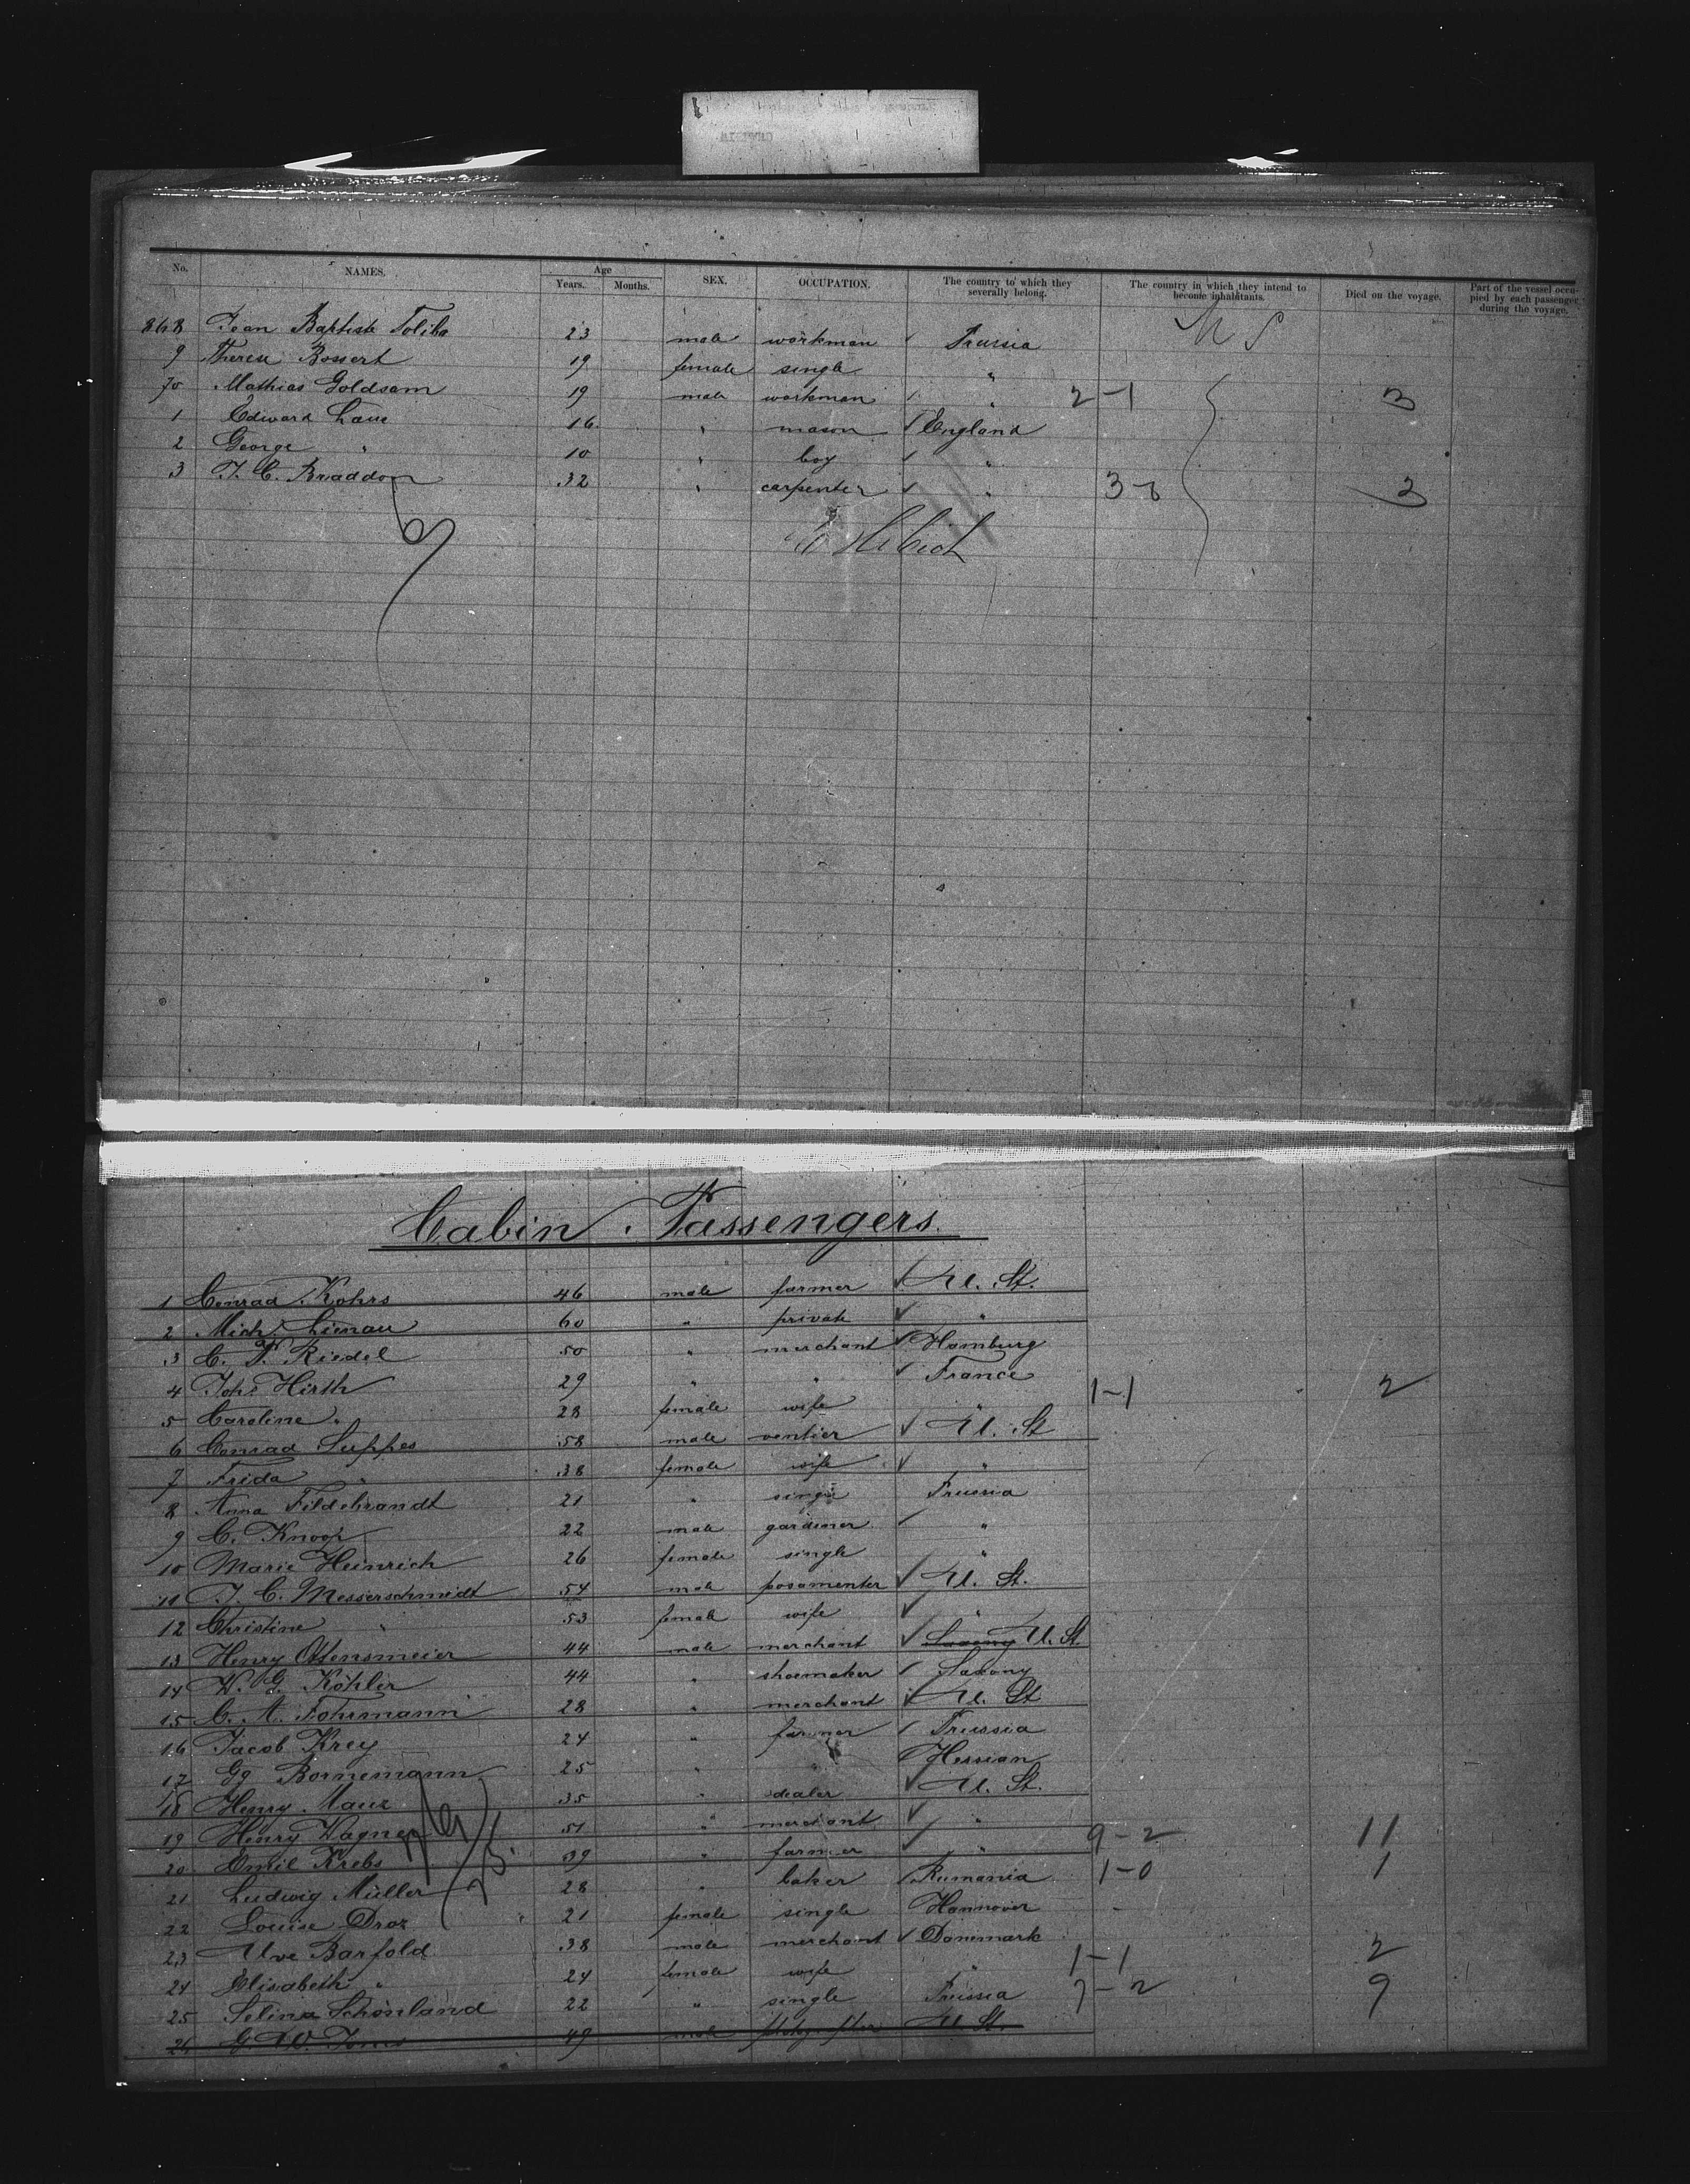 No. NAMES. Age Years. Months. SEX. OCCUPATION. The country to which they severally belong. The country in which they intend to become inhabitants. Died on the voyage. Part of the vessel occupied by each passenger during the voyage.
868 Jean Baptiste Toliba 23 male workman ✓ Prussia U S
9 Therese Bossert 19 female single "
70 Mathias Goldsam 19 male workman ✓ " 2-1 3
1 Edward Lane 16 " mason ✓ England
2 George " 10 " boy ✓ "
3 J. C. Braddon 32 " carpenter ✓ " 3-0 3
6
Cabin Passengers.
1 Conrad Kohrs 46 male farmer ✓ U. St.
2 Mich. Lienau 60 " private ✓ "
3 C. W. Riedel 50 " merchant ✓ Hamburg
4 Joh. Hirth 29 " " ✓ France
5 Caroline " 28 female wife " 1-1 2
6 Conrad Suppes 58 male rentier ✓ U. St
7 Frida " 38 female wife ✓ "
8 Anna Fildebrandt 21 " single Prussia
9 C. Knoop 22 male gardener ✓ "
10 Marie Heinrich 26 female single "
11 J. C. Messerschmidt 54 male posamenter ✓ U. St.
12 Christine " 53 female wife ✓ "
13 Henry Ottensmeier 44 male merchant ✓ Saxony U. St.
14 W. G. Köhler 44 " shoemaker ✓ Saxony
15 C. A. Fohrmann 28 " merchant ✓ U. St
16 Jacob Krey 24 " farmer ✓ Prussia
17 Gg Bornemann 25 " " ✓ Hessian
18 Henry Maux 35 " dealer ✓ U. St.
19 Henry Wagner 51 " merchant ✓ "
20 Emil Krebs 39 " farmer ✓ " 9-2 11
21 Ludwig Müller 28 " baker ✓ Rumania 1-0 1
22 Louise Droz 21 female single Hannover
23 Uve Barfold 38 male merchant ✓ Danemark
24 Elisabeth " 24 female wife " 1-1 2
25 Selina Schönland 22 " single Prussia 7-2 9
26 G. W. 49 male U. St.